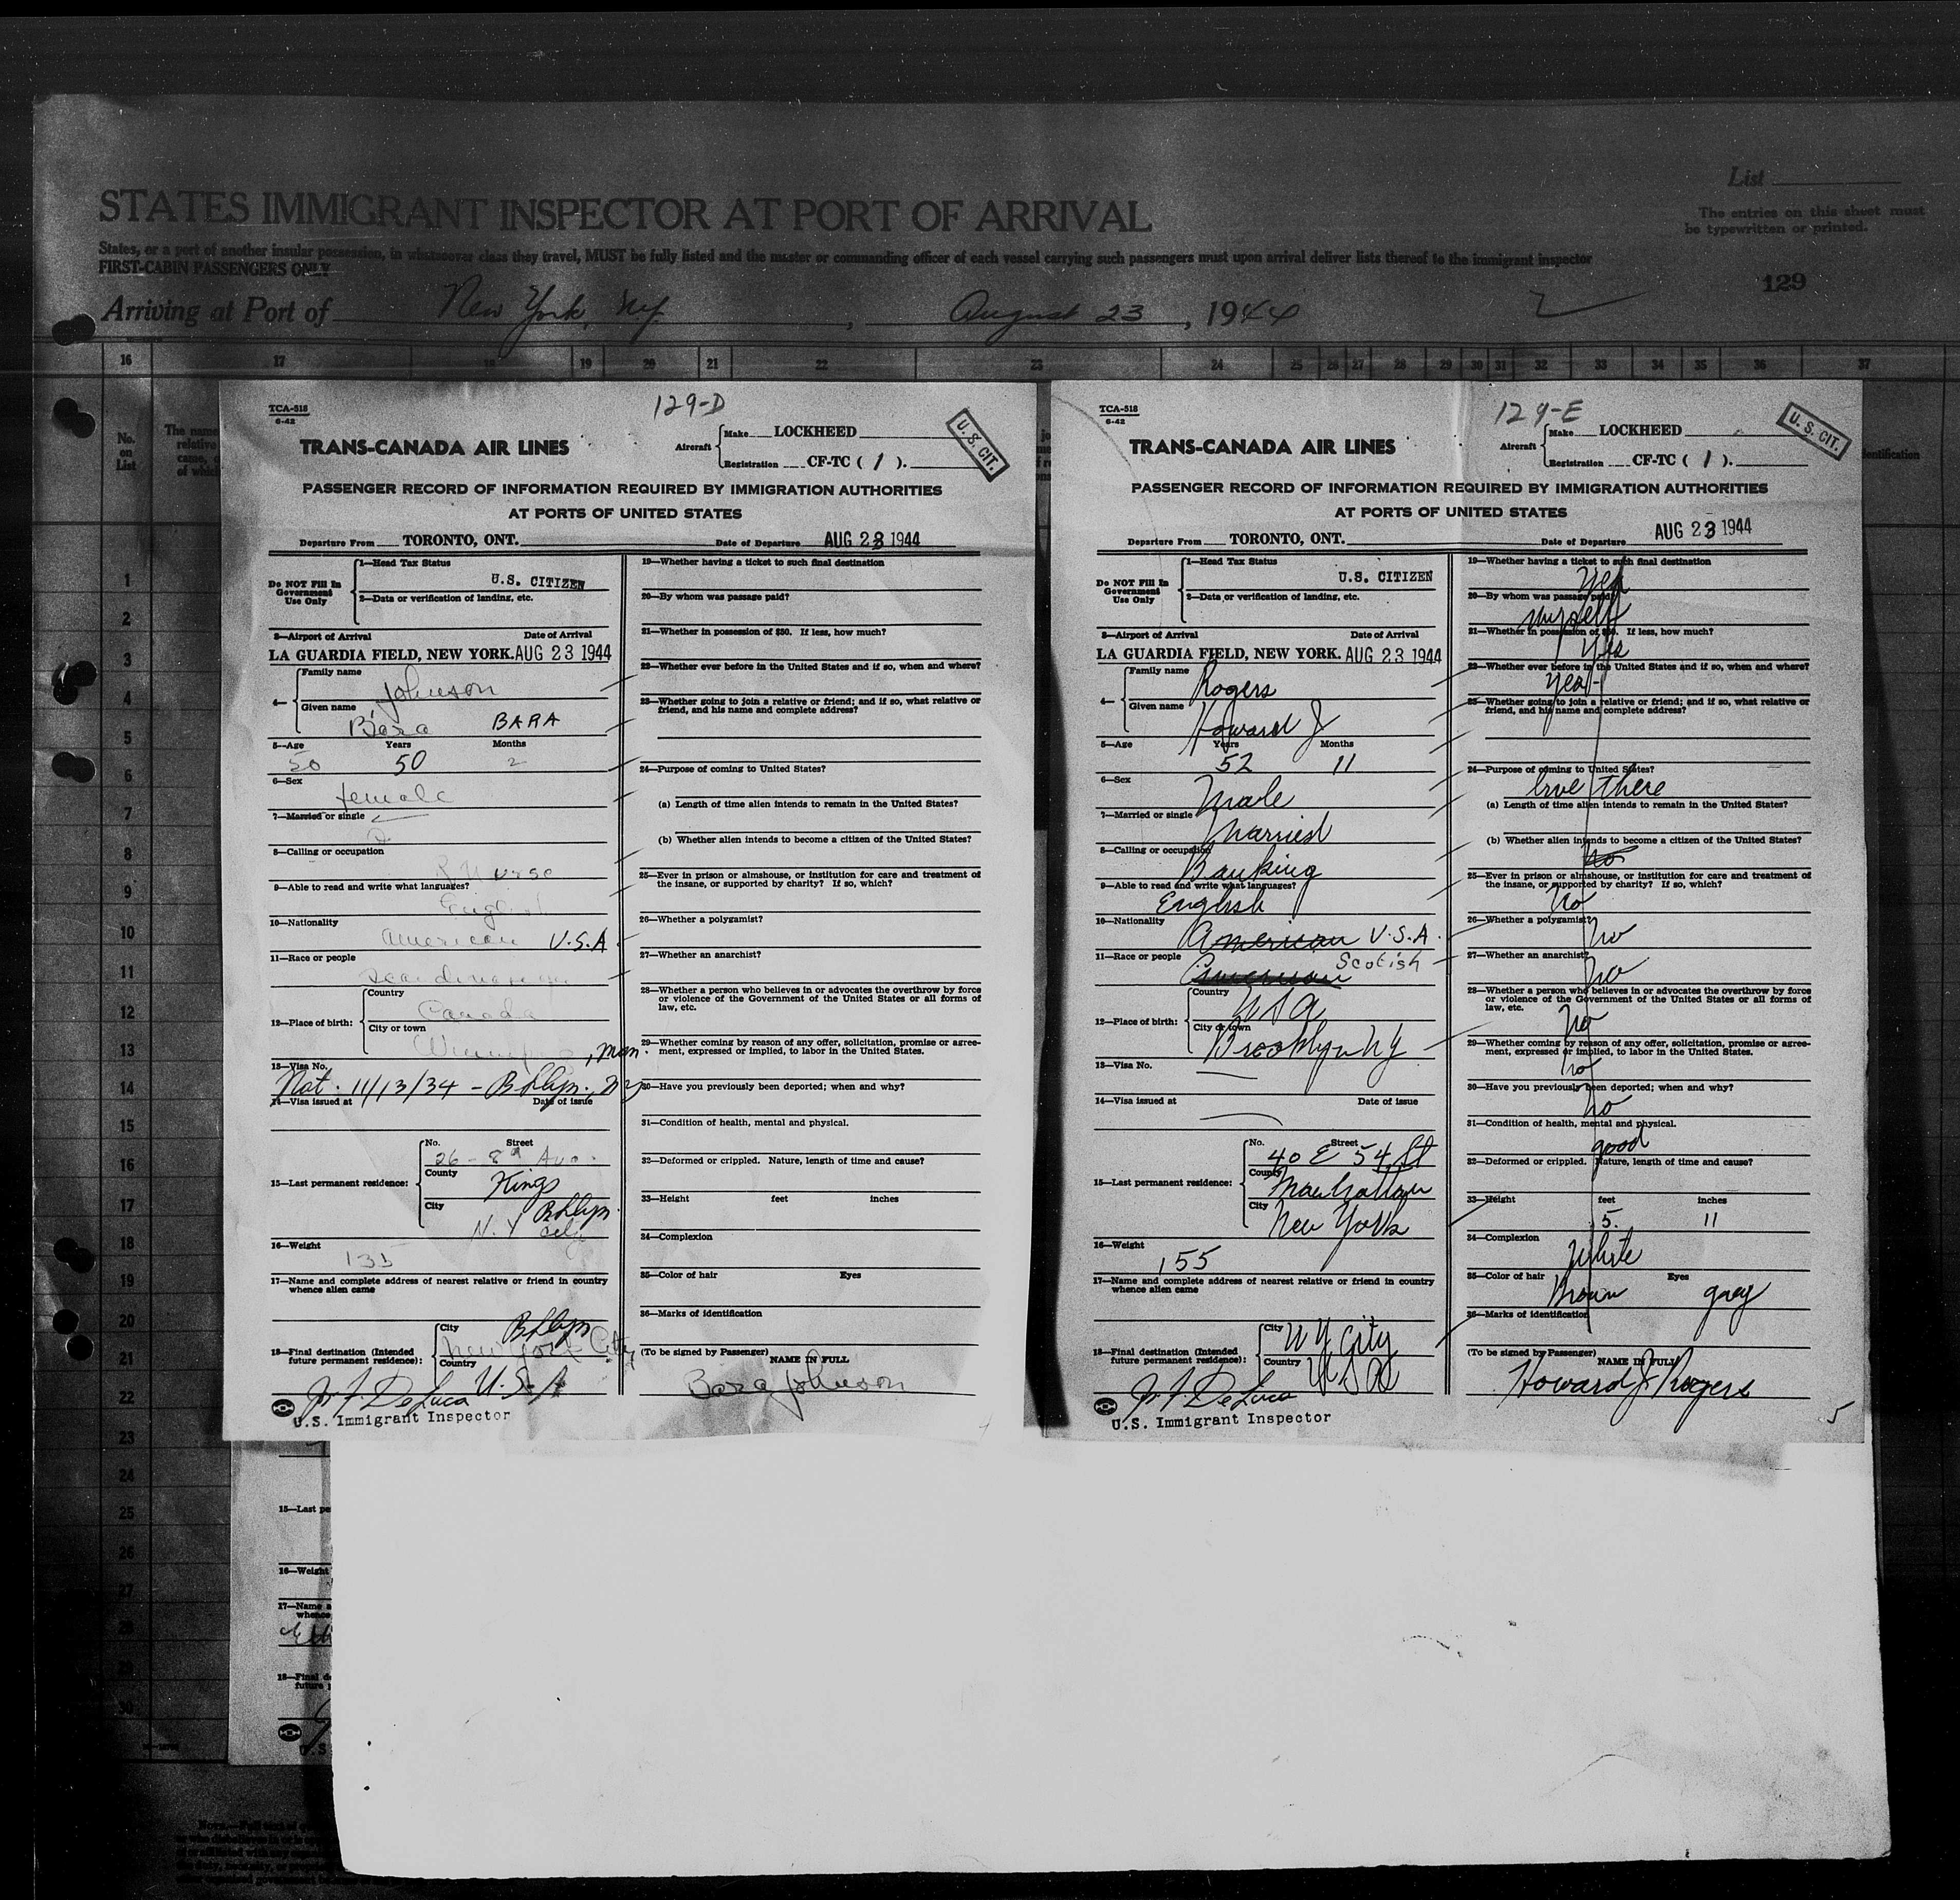 List
STATES IMMIGRANT INSPECTOR AT PORT OF ARRIVAL
The entries on this sheet must
be typewritten or printed.
States, or a port of another insular possession, in whatsoever class they travel, MUST be fully listed and the master or commanding officer of each vessel carrying such passengers must upon arrival deliver lists thereof to the immigrant inspector
FIRST-CABIN PASSENGERS ONLY
129
Arriving at Port of New York, NY. , August 23 , 1944 2
16 17 18 19 20 21 22 23 24 25 26 27 28 29 30 31 32 33 34 35 36 37
No.
on
List
The name
relative
came,
of which
entification
1
2
3
4
5
6
7
8
9
10
11
12
13
14
15
16
17
18
19
20
21
22
23
24
25
26
27
28
29
30
TCA-518
6-42
129-D
TRANS-CANADA AIR LINES
Aircraft
Make LOCKHEED
Registration CF-TC ( 1 ).
U.S. CIT.
PASSENGER RECORD OF INFORMATION REQUIRED BY IMMIGRATION AUTHORITIES
AT PORTS OF UNITED STATES
Departure From TORONTO, ONT. Date of Departure AUG 23 1944
Do NOT Fill In
Government
Use Only
1—Head Tax Status
U.S. CITIZEN
2—Data or verification of landing, etc.
3—Airport of Arrival Date of Arrival
LA GUARDIA FIELD, NEW YORK. AUG 23 1944
4—
Family name
Johnson
Given name
Bara BARA
5—Age Years Months
50 50 2
6—Sex
female
7—Married or single
8—Calling or occupation
R Nurse
9—Able to read and write what languages?
English
10—Nationality
American U.S.A
11—Race or people
Scandinavian
12—Place of birth:
Country
Canada
City or town
Winnipeg, Man.
13—Visa No.
Nat. 11/13/34 - Bklyn. NY
14—Visa issued at Date of issue
15—Last permanent residence:
No. Street
26 - 8th Ave.
County
Kings
City
Bklyn.
N.Y City
16—Weight
135
17—Name and complete address of nearest relative or friend in country
whence alien came
18—Final destination (Intended
future permanent residence):
City
Bklyn
New York City
Country
U.S.A
De Luca
U.S. Immigrant Inspector
19—Whether having a ticket to such final destination
20—By whom was passage paid?
21—Whether in possession of $50. If less, how much?
22—Whether ever before in the United States and if so, when and where?
23—Whether going to join a relative or friend; and if so, what relative or
friend, and his name and complete address?
24—Purpose of coming to United States?
(a) Length of time alien intends to remain in the United States?
(b) Whether alien intends to become a citizen of the United States?
25—Ever in prison or almshouse, or institution for care and treatment of
the insane, or supported by charity? If so, which?
26—Whether a polygamist?
27—Whether an anarchist?
28—Whether a person who believes in or advocates the overthrow by force
or violence of the Government of the United States or all forms of
law, etc.
29—Whether coming by reason of any offer, solicitation, promise or agree-
ment, expressed or implied, to labor in the United States.
30—Have you previously been deported; when and why?
31—Condition of health, mental and physical.
32—Deformed or crippled. Nature, length of time and cause?
33—Height feet inches
34—Complexion
35—Color of hair Eyes
36—Marks of identification
(To be signed by Passenger)
NAME IN FULL
Bara Johnson
TCA-518
6-42
129-E
TRANS-CANADA AIR LINES
Aircraft
Make LOCKHEED
Registration CF-TC ( 1 ).
U.S. CIT.
PASSENGER RECORD OF INFORMATION REQUIRED BY IMMIGRATION AUTHORITIES
AT PORTS OF UNITED STATES
Departure From TORONTO, ONT. Date of Departure AUG 23 1944
Do NOT Fill In
Government
Use Only
1—Head Tax Status
U.S. CITIZEN
2—Data or verification of landing, etc.
3—Airport of Arrival Date of Arrival
LA GUARDIA FIELD, NEW YORK. AUG 23 1944
4—
Family name
Rogers
Given name
Howard J
5—Age Years Months
52 11
6—Sex
Male
7—Married or single
Married
8—Calling or occupation
Banking
9—Able to read and write what languages?
English
10—Nationality
American U.S.A.
11—Race or people
American Scotish
12—Place of birth:
Country
USA
City or town
Brooklyn NY
13—Visa No.
14—Visa issued at Date of issue
15—Last permanent residence:
No. Street
40 E 54 St
County
Manhattan
City
New York
16—Weight
155
17—Name and complete address of nearest relative or friend in country
whence alien came
18—Final destination (Intended
future permanent residence):
City
NY City
Country
USA
De Luca
U.S. Immigrant Inspector
19—Whether having a ticket to such final destination
Yes
20—By whom was passage paid?
Myself
21—Whether in possession of $50. If less, how much?
Yes
22—Whether ever before in the United States and if so, when and where?
Yes
23—Whether going to join a relative or friend; and if so, what relative or
friend, and his name and complete address?
24—Purpose of coming to United States?
live there
(a) Length of time alien intends to remain in the United States?
(b) Whether alien intends to become a citizen of the United States?
no
25—Ever in prison or almshouse, or institution for care and treatment of
the insane, or supported by charity? If so, which?
No
26—Whether a polygamist?
no
27—Whether an anarchist?
no
28—Whether a person who believes in or advocates the overthrow by force
or violence of the Government of the United States or all forms of
law, etc.
no
29—Whether coming by reason of any offer, solicitation, promise or agree-
ment, expressed or implied, to labor in the United States.
no
30—Have you previously been deported; when and why?
no
31—Condition of health, mental and physical.
good
32—Deformed or crippled. Nature, length of time and cause?
33—Height feet inches
5. 11
34—Complexion
White
35—Color of hair Eyes
Brown grey
36—Marks of identification
(To be signed by Passenger)
NAME IN FULL
Howard J Rogers
5
15—Last pe
16—Weight
17—Name a
whence
18—Final d
future
U.S